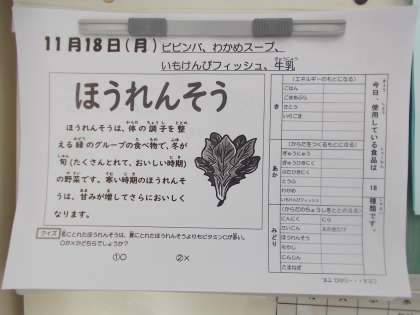 11月18日(月) ビビンバ、わかめスープ、
いもけんぴフィッシュ、牛乳
ほうれんそう
ほうれんそうは、体の調子を整
える緑のグループの食べ物で、冬が
旬(たくさんとれて、おいしい時期)
の野菜です。寒い時期のほうれんそ
うは、甘みが増してさらにおいしく
なります。
クイズ
○か×かどちらでしょうか?
①○ ②×
今日、使用している食品は 18 種類です。
き
(エネルギーのもとになる)
ごはん
ごまあぶら
さとう
あか
(からだをつくるもとになる)
ぎゅうにゅう
ぎゅうひきにく
とうふ
わかめ
いもけんぴフィッシュ
みどり
にんにく にら
だいこん
ほうれんそう
もやし
にんじん
たまねぎ